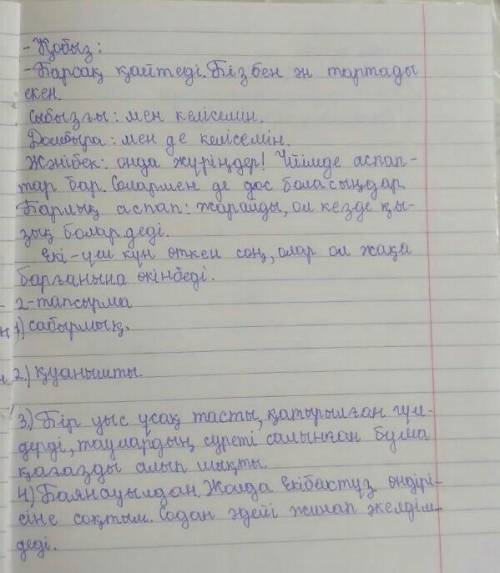 - Қобыз:
- Барсақ қайтеді. Бізбен ән тартады
екен.
Сыбызғы: мен келісемін.
Домбыра: мен де келісемін.
Жәнібек: онда жүріңдер! Үйімде аспап-
тар бар. Солармен де дос боласыңдар
Барлық аспап: жарайды, ол кезде қы-
зық болар деді.
Екі-үш күн өткен соң, олар ол жаққа
барғанына өкінбеді.
2-тапсырма
1) сабырлық.
2.) қуанышты.
3.) Бір уыс ұсақ тасты, қатырылған гүл-
дерді, таулардың суреті салынған бума
қағазды алып шықты.
4) Баянауылдан. Жолда Екібастұз өндірі-
сіне соқтым. Содан әдейі жинап әкелдім-
деді.